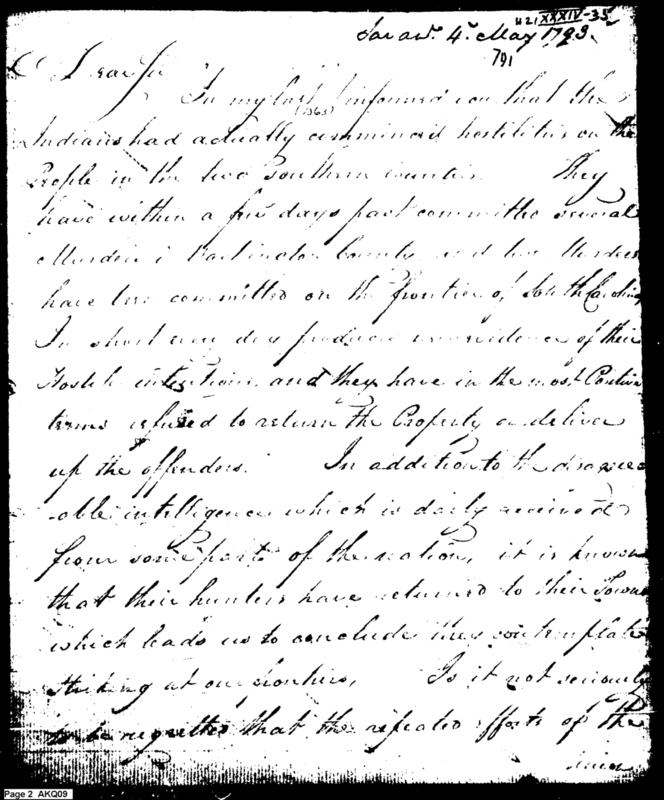 H21 XXXIV-35
Savanh. 4th. May 1793.
791
Dear Sir
In my last I informed you that the
(1363)
Indians had actually commenced hostilities on the
People in the two southern counties. They
have within a few days past committed several
Murders in Washington County and two Murders
have been committed on the frontier of South Carolina
In short every day produces new evidence of their
Hostile intentions and they have in the most Positive
terms refused to return the Property or deliver
up the offenders. In addition to the disagree
-able intelligence which is daily received
from some parts of the nation, it is known
that their hunters have returned to their Towns
which leads us to conclude they contemplate
striking at our frontiers, Is it not seriously
to be regretted that the repeated efforts of the
Page 2 AKQ09